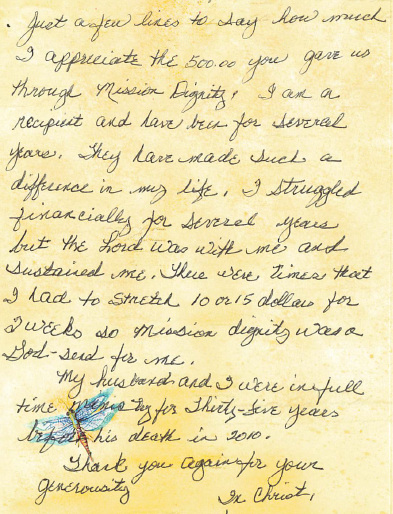 . Just a few lines to say how much
I appreciate the 500.00 you gave us
through Mission Dignity. I am a
recipient and have been for several
years. They have made such a
difference in my life. I struggled
financially for several years
but the Lord was with me and
sustained me. There were times that
I had to stretch 10 or 15 dollars for
2 weeks so Mission dignity was a
God-send for me.
My husband and I were in full
time ministry for thirty-five years
before his death in 2010.
Thank you again for your
generousity
In Christ,